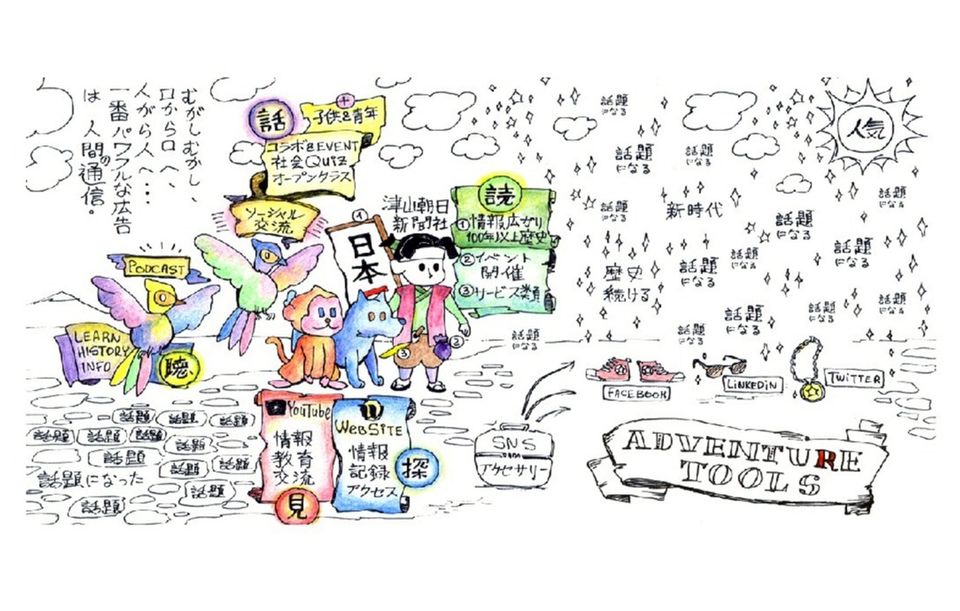 むかしむかし、
口から口へ、
人がら人へ…
一番パワフルな広告
は 人間の通信。
話
＋
子供&青年
コラボ&EVENT
社会QUIZ
オープンクラス
ソーシャル
交流
PODCAST
LEARN
HISTORY
INFO
聴
①
日本
津山朝日
新聞社
読
①情報広がり
100年以上歴史
②イベント
開催
③サービス類
③
②
YOUTUBE
情報
教育
交流
見
n
WEBSITE
情報
記録
アクセス
探
話題
話題
話題
話題
話題
話題
話題
話題
話題
話題
話題になった
話題
話題
SNS
アクセサリー
話題
になる
話題
になる
話題
になる
人気
話題
になる
新時代
話題
になる
歴史
続ける
話題
になる
話題
になる
話題
になる
話題
になる
話題
になる
話題
になる
話題
になる
話題
になる
話題
になる
FACEBOOK
LINKEDIN
TWITTER
ADVENTURE
TOOLS